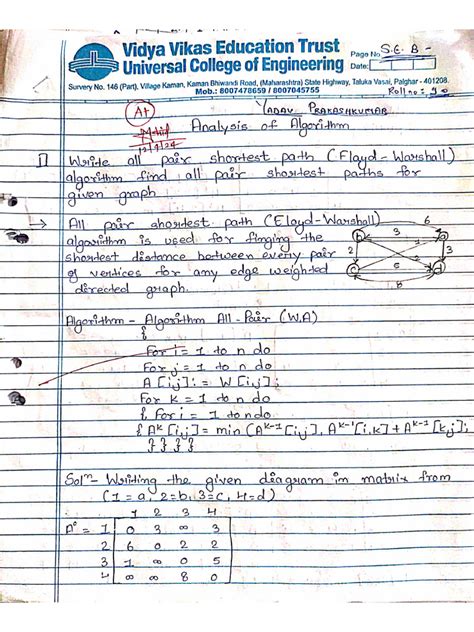 Vidya Vikas Education Trust
Universal College of Engineering
Page No. S.E. B-
Date:
Survey No. 146 (Part), Village Kaman, Kaman Bhiwandi Road, (Maharashtra) State Highway, Taluka Vasai, Palghar - 401208.
Mob.: 8007478659 / 8007045755
Roll no:
A+
YADAV PRAKASHKUMAR
Analysis of Algorithm
1] Write all pair shortest path (Floyd-Warshall)
algorithm find all pair shortest paths for
given graph
→ All pair shortest path (Floyd-Warshall)
algorithm is used for finging the
shortest distance between every pair
of vertices for any edge weighted
directed graph.
6
3
2
3
8
Algorithm - Algorithm All-Pair (W,A)
{
For i = 1 to n do
For j = 1 to n do
A [i,j] := W[i,j];
For k = 1 to n do
{ For i = 1 to n do
{ A^k [i,j] = min (A^k-1 [i,j], A^k-1 [i,k] + A^k-1 [k,j];
} } } }
Solⁿ - Writing the given diagram in matrix from
(1 = a, 2=b, 3=c, 4=d)
1 2 3 4
A° = 1 0 3 ∞ 3
2 6 0 2 2
3 1 ∞ 0 5
4 ∞ ∞ 8 0